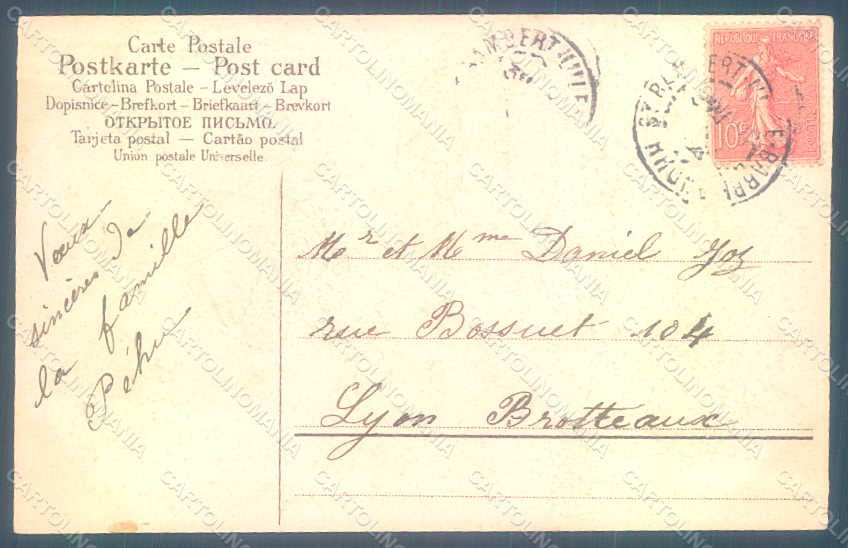 Carte Postale
Postkarte — Post card
Cartolina Postale - Levelező Lap
Dopisnice - Brefkort - Briefkaart - Brevkort
ОТКРЫТОЕ ПИСЬМО.
Tarjeta postal — Cartão postal
Union postale Universelle
REPUBLIQUE FRANÇAISE
10c
RHONE
Vœux
sincères de
la famille
Péhu
Mr et Mme Daniel
rue Bossuet 104
Lyon Brotteaux
CARTOLINOMANIA